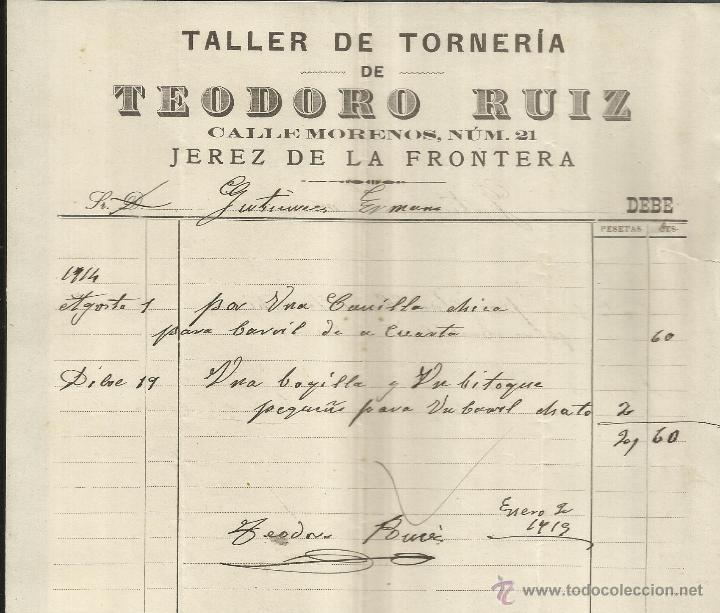 TALLER DE TORNERÍA
DE
TEODORO RUIZ
CALLE MORENOS, NÚM. 21
JEREZ DE LA FRONTERA
Sr. D. Gutierrez Ermano DEBE
PESETAS CTS.
1914
Agosto 1 por Una Canilla chica
para barril de a cuarta 60
Dibre 19 Una bogilla y Un bitoque
pequeño para Un barril chato 2
2, 60
Enero 2
Teodoro Ruiz
todocoleccion
www.todocoleccion.net